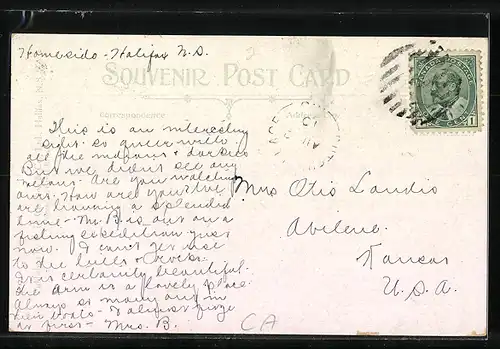 Homeside - Halifax N.S.
SOUVENIR POST CARD
Correspondence
Address
CANADA POSTAGE
1
This is an interesting
city. so queer with
all the indians & darkies
But we didn't see any
melons. Are you watching
ours. How are you? We
are having a splendid
time - Mr. B. is out on a
fishing expedition just
now. I can't get use
to the hills & rocks.
It is certainly beautiful.
the Arm is a lovely place.
Always so many out in
their boats -
as first - Mrs. B.
Mrs Otis Landis
Abilene.
Kansas
U.S.A.
CA